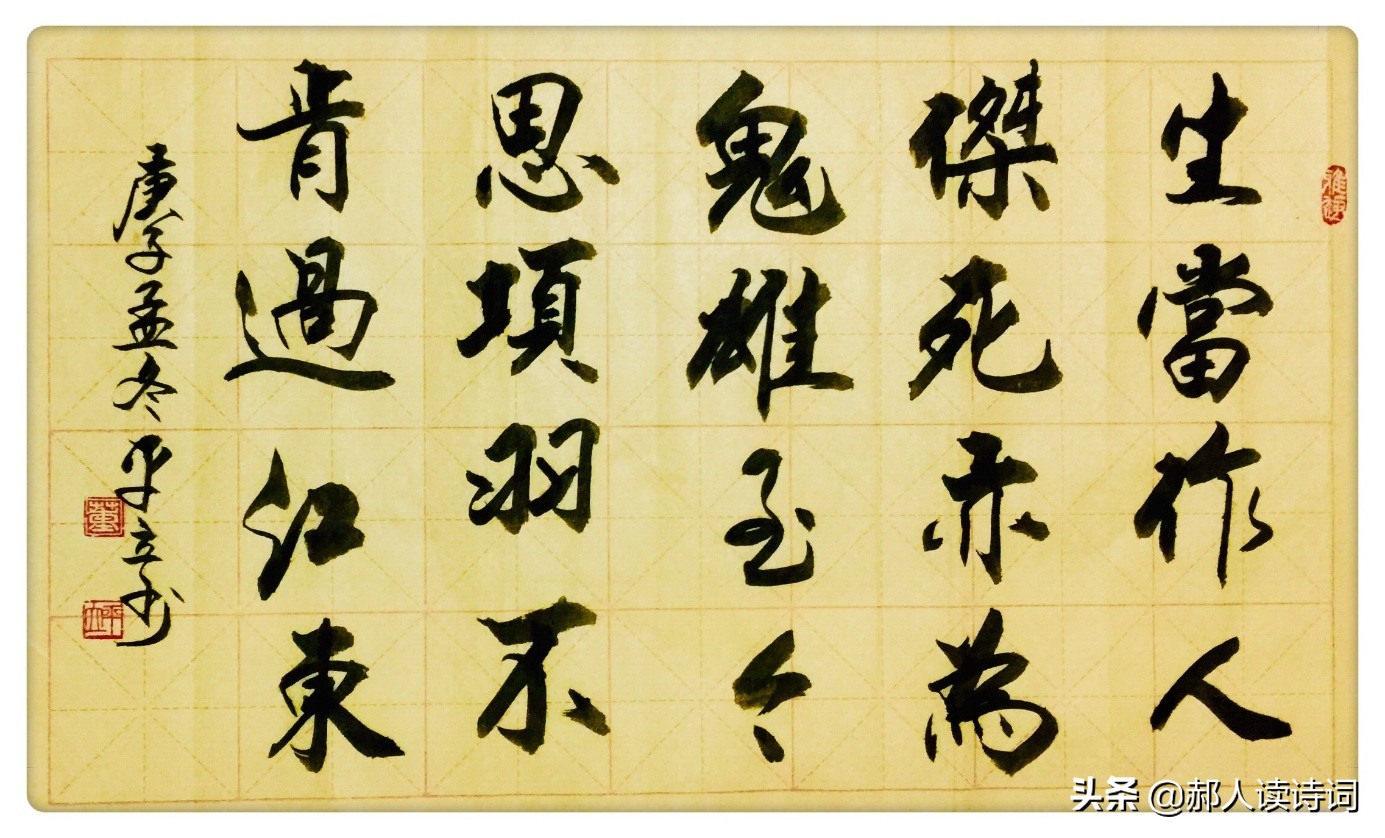 生當作人
傑死亦為
鬼雄至今
思項羽不
肯過江東
庚子孟冬平立书
董
头条 @郝人读诗词